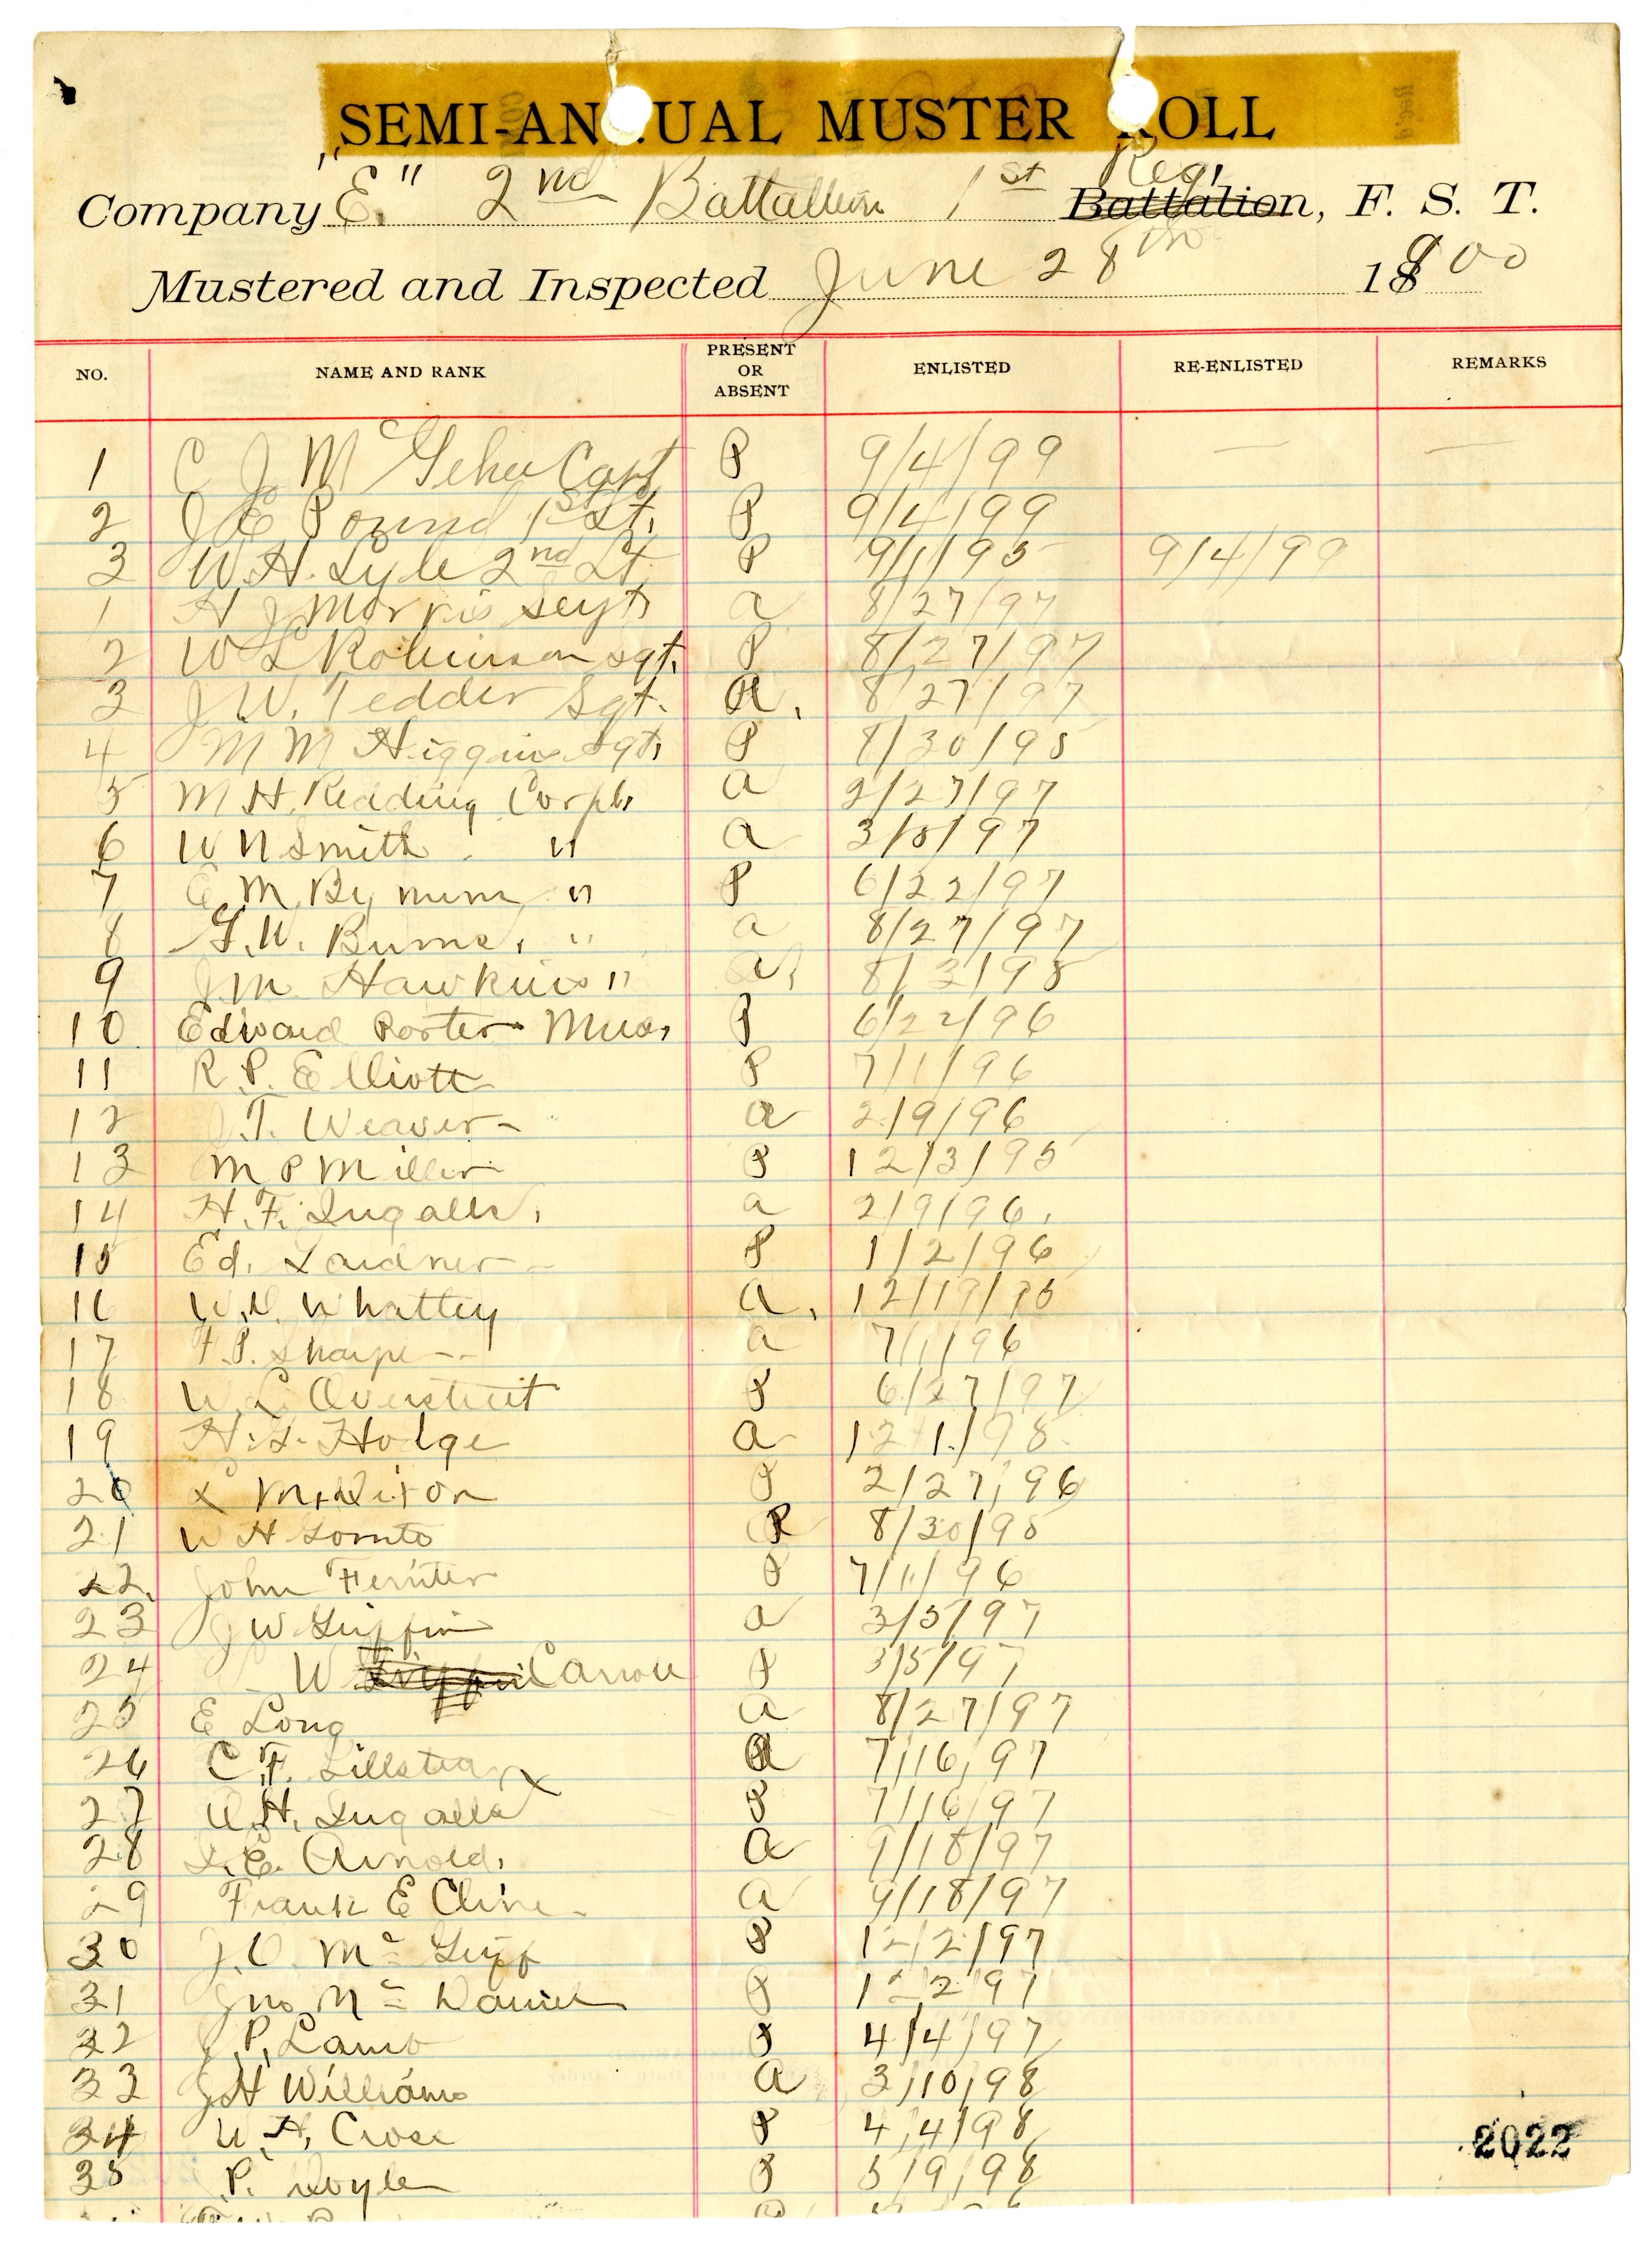 SEMI-ANNUAL MUSTER ROLL
Company "E" 2nd Battallion 1st Reg. Battalion, F. S. T.
Mustered and Inspected June 28th 1900
NO. NAME AND RANK PRESENT OR ABSENT ENLISTED RE-ENLISTED REMARKS
1 C J McGehee Capt P 9/4/99 — —
2 J E Pound 1st Lt. P 9/4/99
3 W. H. Lyle 2nd Lt P 9/1/95 9/4/99
1 H J Morris Sergt a 8/27/97
2 W L Robinson sgt. P 8/27/97
3 J W. Tedder Sgt. a. 8/27/97
4 M M Higgins Sgt. P 8/30/95
5 M H. Redding Corpl. a 2/27/97
6 W N Smith " a 3/5/97
7 E M By " P 6/22/97
8 G. W. Burns, " a 8/27/97
9 J M Hawkins " a, 8/3/98
10 Edward Porter Mus, P 6/22/96
11 R. P. Elliott P 7/1/96
12 J. T. Weaver a 2/9/96
13 M P Miller P 12/3/95
14 H. F. Ingalls, a 2/9/96.
15 Ed. Lardner P 1/2/96
16 W. N. Whatley a. 12/19/95
17 F. P. Sharpe a 7/1/96
18 W. L. Overstreet P 6/27/97
19 H. L. Hodge a 12/1/98
20 L M. Dixon P 2/27/96
21 W H Lomto P 8/30/95
22. John Fernter P 7/1/96
23 J W Griffin a 3/5/97
24 W Griffin P 3/5/97
25 E Long a 8/27/97
26 C. F. a 7/16/97
27 A. H. Ingalls P 7/16/97
28 L. E. Arnold, a 9/18/97
29 Frank E Cline a 9/18/97
30 J. C. Mc Griff P 12/2/97
31 Jno Mc Daniel P 12/2/97
32 J. P. Lamb P 4/4/97
33 J H Williams a 3/10/98
34 W. H. Crose P 4/4/98
35 P. Doyle P 5/9/98
2022